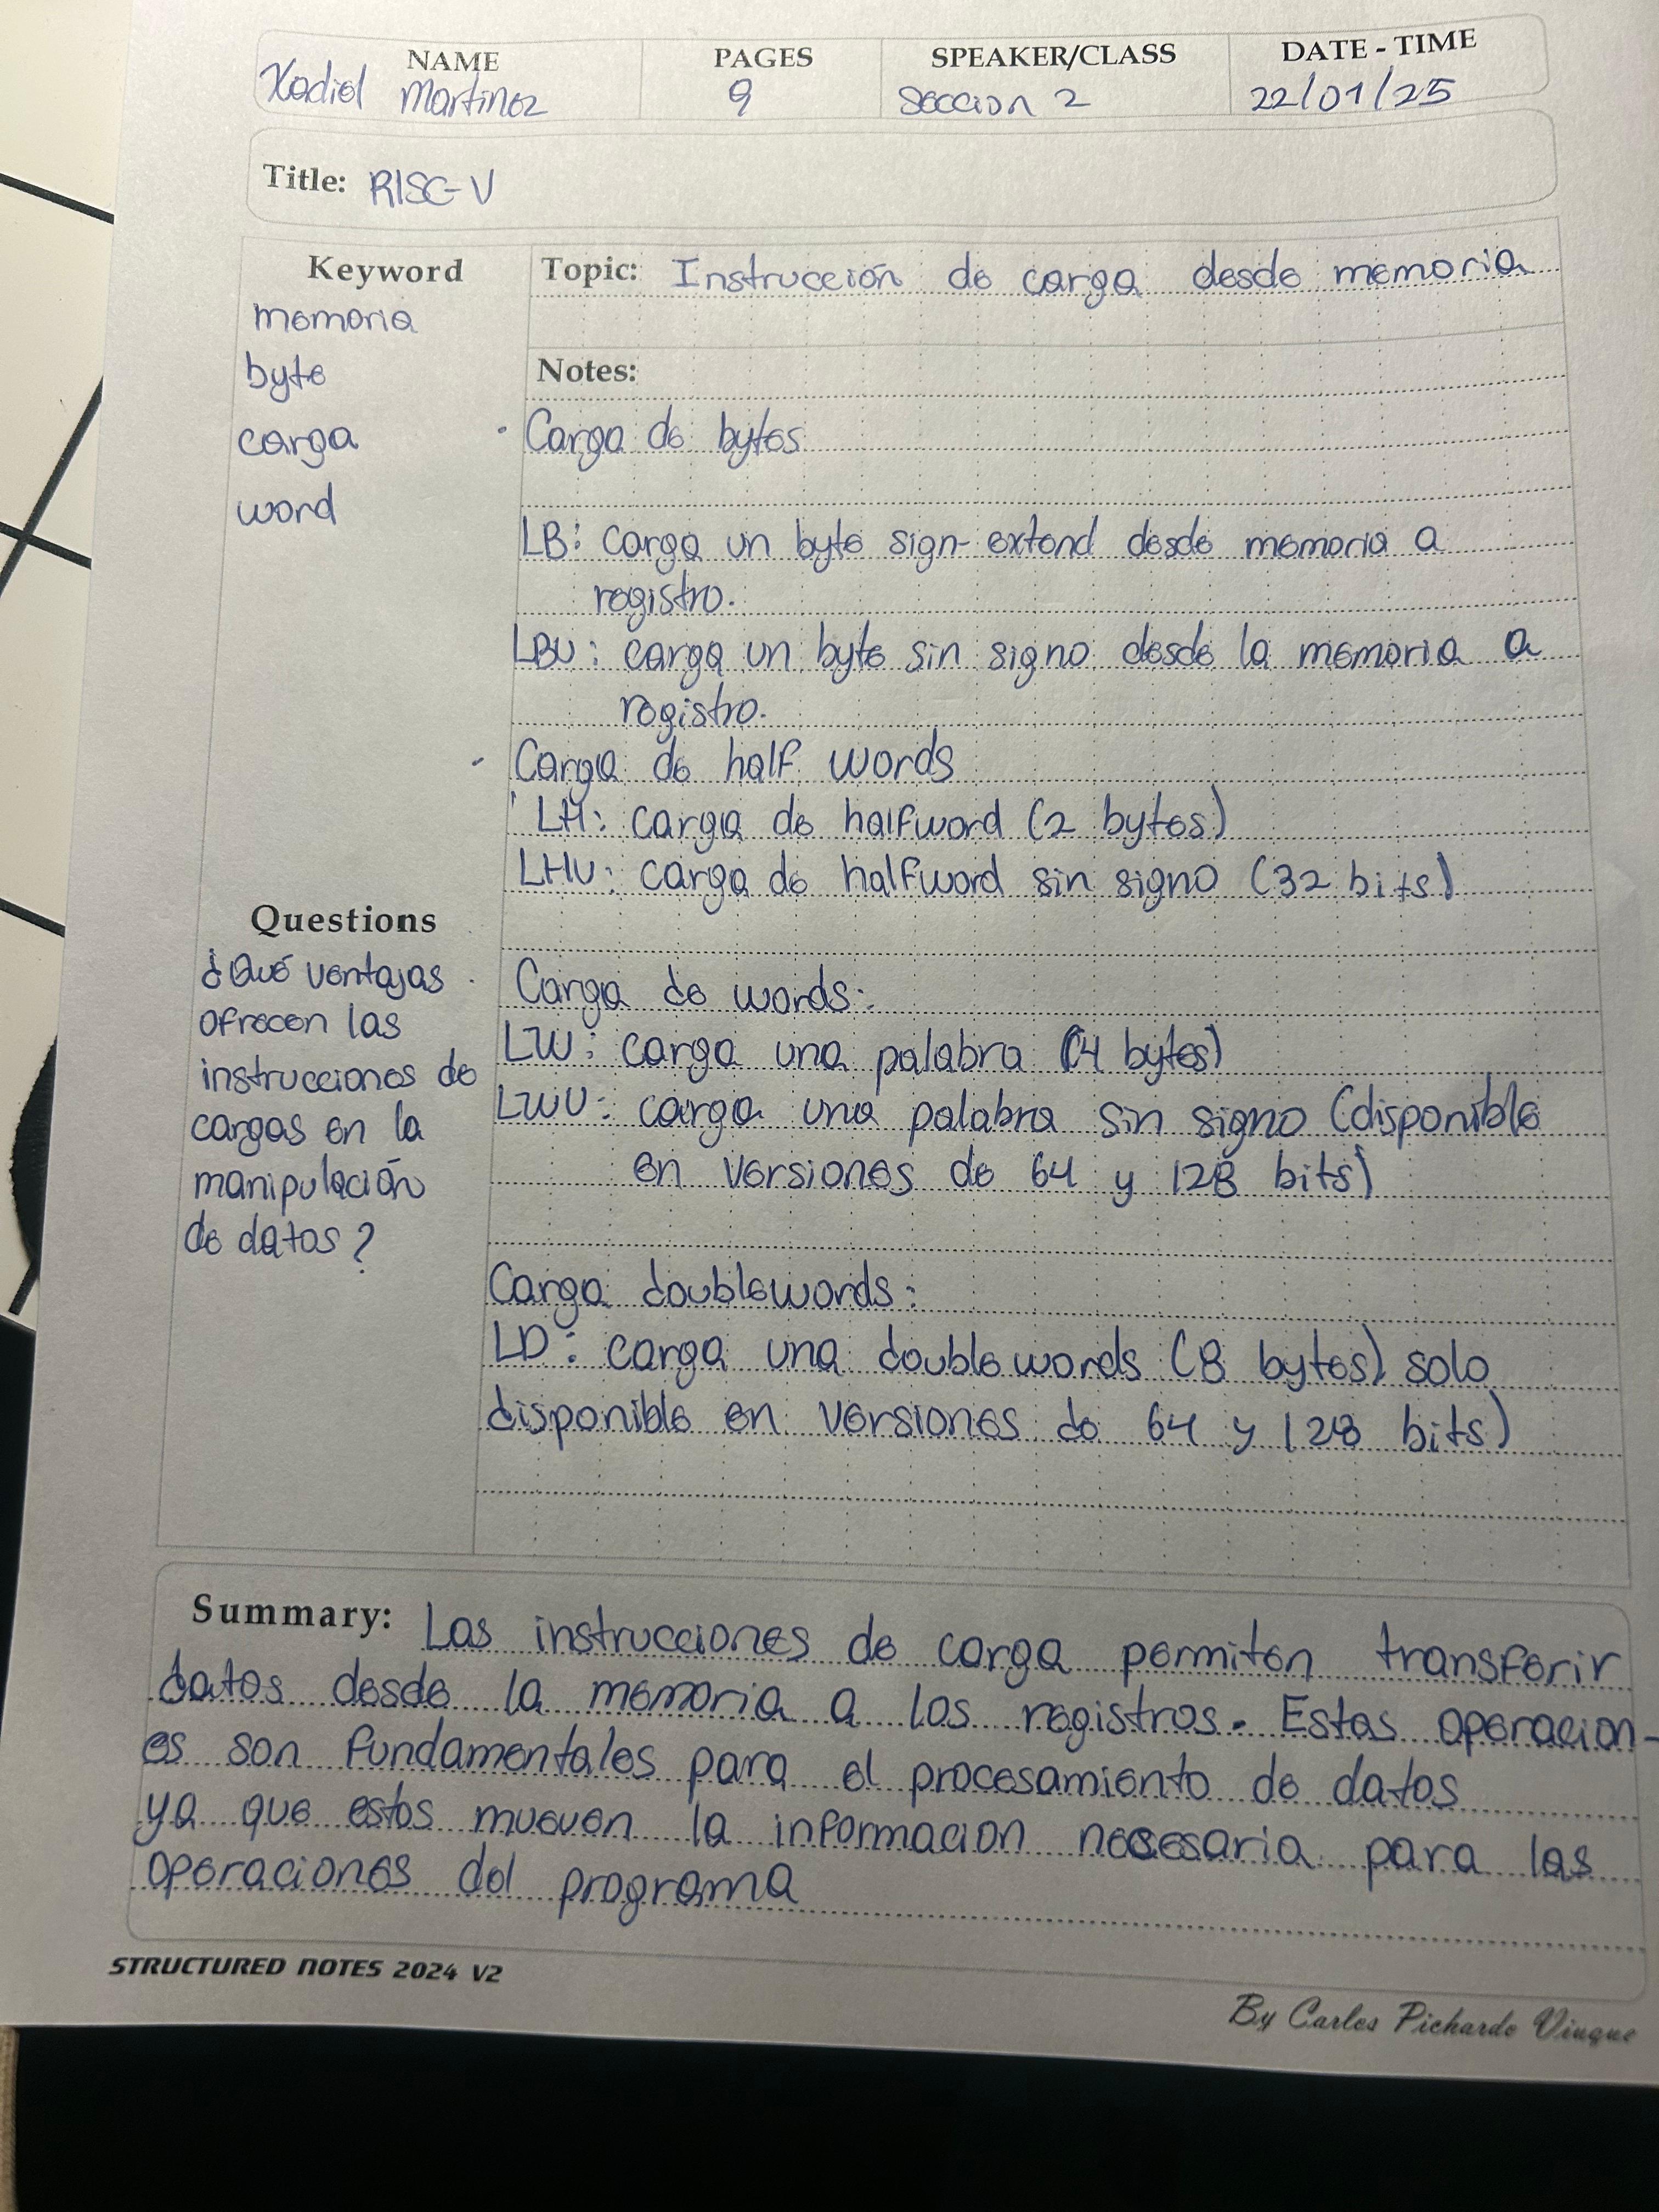 NAME PAGES SPEAKER/CLASS DATE - TIME
Xadiel Martinez 9 Seccion 2 22/01/25
Title: RISC-V
Keyword
memoria
byte
carga
word
Questions
¿Qué ventajas
ofrecen las
instrucciones de
cargas en la
manipulación
de datos?
Topic: Instrucción de carga desde memoria
Notes:
· Carga de bytes
LB: carga un byte sign-extend desde memoria a
registro.
LBU: carga un byte sin signo desde la memoria a
registro.
- Carga de half words
LH: carga de halfword (2 bytes)
LHU: carga de halfword sin signo (32 bits)
· Carga de words:
LW: carga una palabra (4 bytes)
LWU: carga una palabra sin signo (disponible
en versiones de 64 y 128 bits)
Carga doublewords:
LD: carga una doublewords (8 bytes) solo
disponible en versiones de 64 y 128 bits)
Summary: Las instrucciones de carga permiten transferir
datos desde la memoria a los registros. Estas operacion-
es son fundamentales para el procesamiento de datos
ya que estos mueven la informacion necesaria para las
operaciones del programa
STRUCTURED NOTES 2024 V2
By Carlos Pichardo Viuque